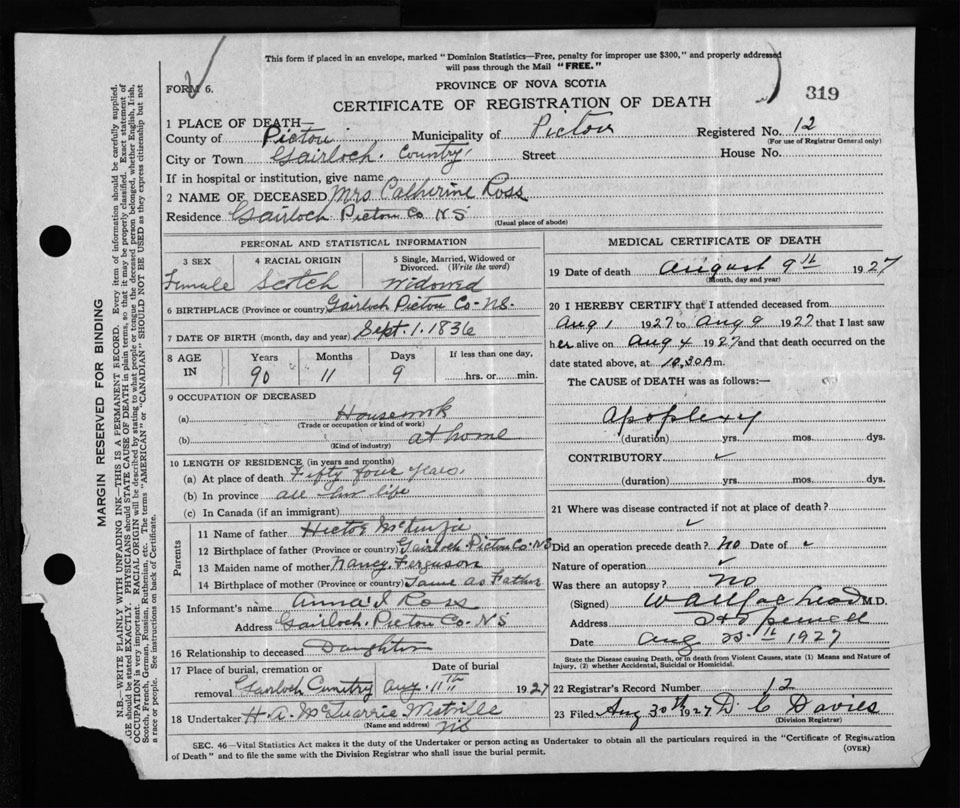 This form if placed in an envelope, marked "Dominion Statistics—Free, penalty for improper use $300," and properly addressed
will pass through the Mail "FREE."
FORM 6.
PROVINCE OF NOVA SCOTIA
CERTIFICATE OF REGISTRATION OF DEATH
319
1 PLACE OF DEATH—
County of Pictou Municipality of Pictou Registered No. 12
(For use of Registrar General only)
City or Town Gairloch. Country Street House No.
If in hospital or institution, give name
2 NAME OF DECEASED Mrs Catherine Ross
Residence Gairloch Pictou Co. NS
(Usual place of abode)
PERSONAL AND STATISTICAL INFORMATION
3 SEX 4 RACIAL ORIGIN 5 Single, Married, Widowed or
Divorced. (Write the word)
Female Scotch Widowed
6 BIRTHPLACE (Province or country) Gairloch Pictou Co. NS.
7 DATE OF BIRTH (month, day and year) Sept. 1. 1836
8 AGE IN Years Months Days If less than one day,
90 11 9 hrs. or min.
9 OCCUPATION OF DECEASED
(a) Housework
(Trade or occupation or kind of work)
(b) at home
(Kind of industry)
10 LENGTH OF RESIDENCE (in years and months)
(a) At place of death Fifty four years.
(b) In province all her life
(c) In Canada (if an immigrant)
Parents
11 Name of father Hector McKenzie
12 Birthplace of father (Province or country) Gairloch Pictou Co. NS
13 Maiden name of mother Nancy Ferguson
14 Birthplace of mother (Province or country) Same as Father
15 Informant's name Anna I Ross
Address Gairloch. Pictou Co. NS
16 Relationship to deceased Daughter
17 Place of burial, cremation or Date of burial
removal Gairloch Cemetry Aug. 11th 1927
18 Undertaker H. A. McQuarrie Westville
(Name and address) NS
MEDICAL CERTIFICATE OF DEATH
19 Date of death August 9th 1927
(Month, day and year)
20 I HEREBY CERTIFY that I attended deceased from
Aug 1 1927 to Aug 9 1927 that I last saw
her alive on Aug 4 1927 and that death occurred on the
date stated above, at 10.30 A m.
The CAUSE of DEATH was as follows:—
Apoplexy
(duration) yrs. mos. dys.
CONTRIBUTORY
(duration) yrs. mos. dys.
21 Where was disease contracted if not at place of death?
Did an operation precede death? No Date of
Nature of operation
Was there an autopsy? No
(Signed) M.D.
Address
Date Aug 25th 1927
State the Disease causing Death, or in death from Violent Causes, state (1) Means and Nature of
Injury, (2) whether Accidental, Suicidal or Homicidal.
22 Registrar's Record Number 12
23 Filed Aug 30th 1927 D. C Davies
(Division Registrar)
SEC. 46—Vital Statistics Act makes it the duty of the Undertaker or person acting as Undertaker to obtain all the particulars required in the "Certificate of Registration
of Death" and to file the same with the Division Registrar who shall issue the burial permit. (OVER)
MARGIN RESERVED FOR BINDING
N.B.—WRITE PLAINLY WITH UNFADING INK—THIS IS A PERMANENT RECORD. Every item of information should be carefully supplied.
AGE should be stated EXACTLY. PHYSICIANS should STATE CAUSE OF DEATH in plain terms, so that it may be properly classified. Exact statement of
OCCUPATION is very important. RACIAL ORIGIN will be described by stating to what people or tongue the deceased person belonged, whether English, Irish,
Scotch, French, German, Russian, Ruthenian, etc. The terms "AMERICAN" or "CANADIAN" SHOULD NOT BE USED as they express citizenship but not
a race or people. See instructions on back of Certificate.